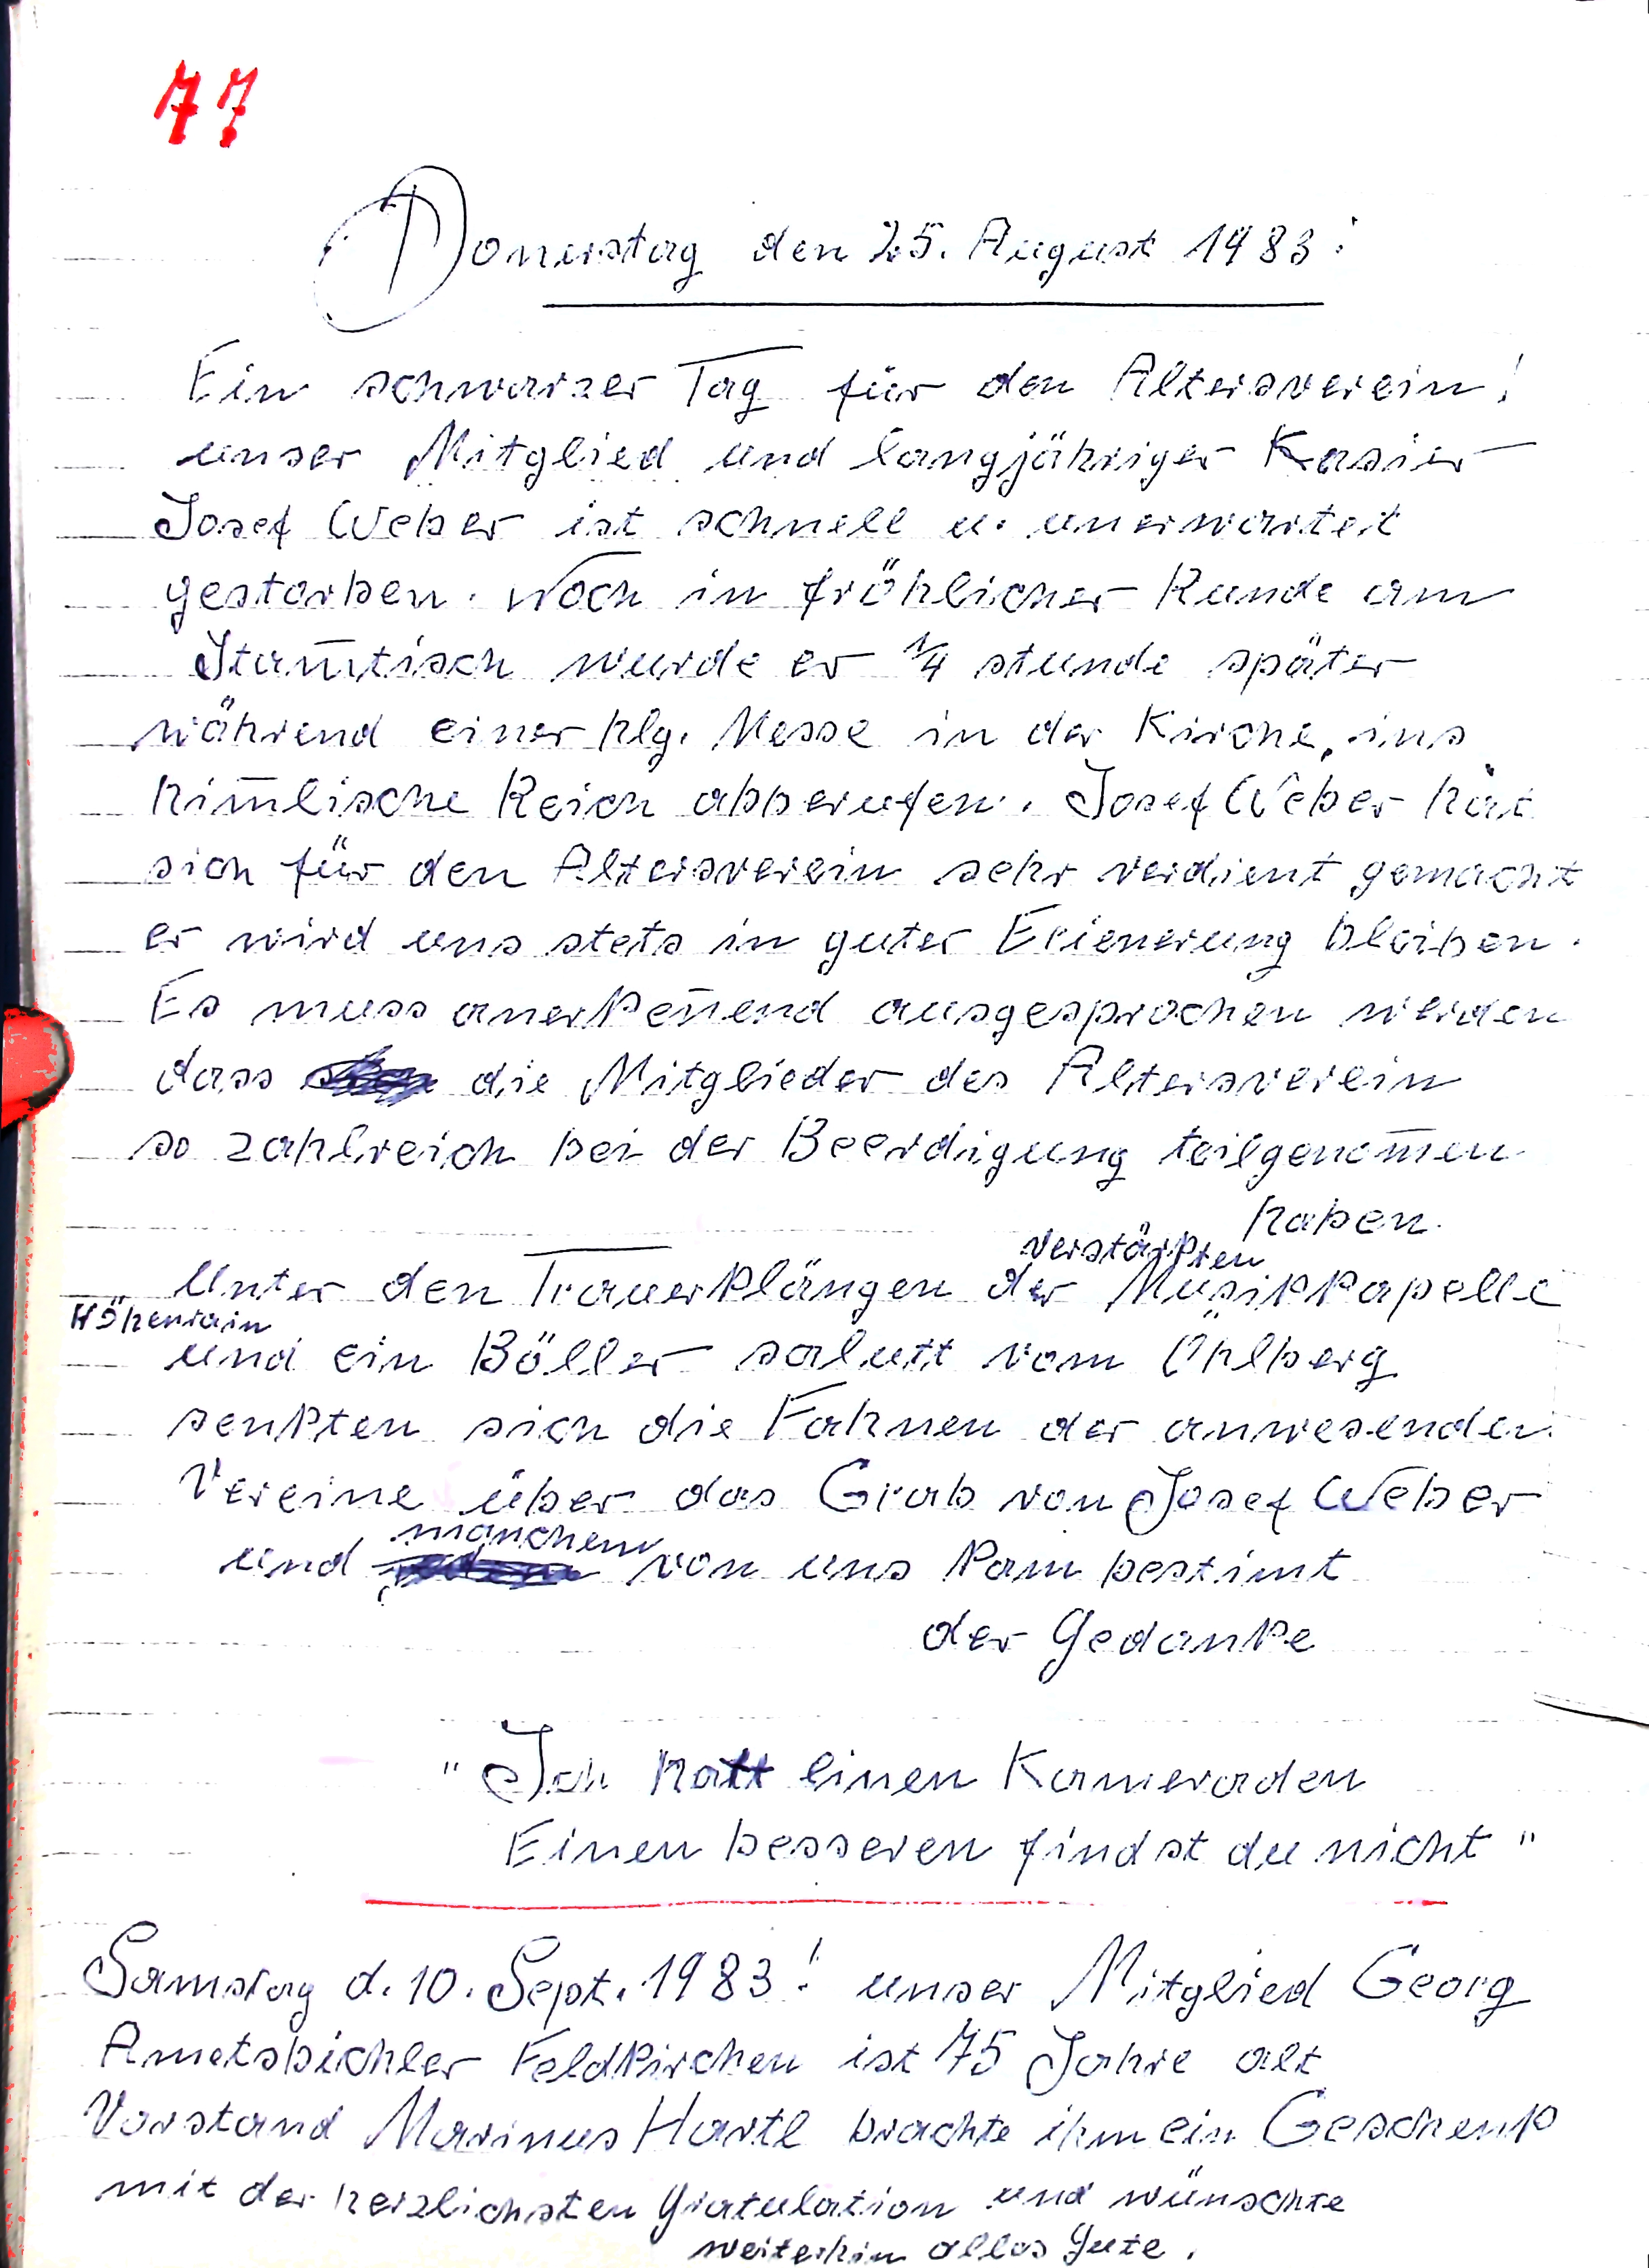 77
Donerstag den 25. August 1983:
Ein schwarzer Tag für den Altersverein!
unser Mitglied und langjähriger Kasier
Josef Weber ist schnell u. unerwartet
gestorben. Noch in fröhlicher Runde am
Stam̄tisch wurde er 1/4 stunde später
während einer hlg. Messe in der Kirche, ins
him̄lische Reich abberufen. Josef Weber hat
sich für den Altersverein sehr verdient gemacht
er wird uns stets in guter Erienerung bleiben.
Es muss anerken̄end ausgesprochen werden
dass die Mitglieder des Altersverein
so zahlreich bei der Beerdigung teilgenom̄en
haben.
verstärkten
Unter den Trauerklängen der Musikkapelle
Höhenrain
und ein Böller salutt vom Öhlberg
senkten sich die Fahnen der anwesenden
Vereine über das Grab von Josef Weber
manchem
und von uns kam bestimt
der Gedanke
" Ich hatt einen Kameraden
Einen besseren findst du nicht "
Samstag d. 10. Sept. 1983! unser Mitglied Georg
Ametsbichler Feldkirchen ist 75 Jahre alt
Vorstand Marinus Hartl brachte ihm ein Geschenk
mit der herzlichsten Gratulation und wünschte
weiterhin alles Gute.